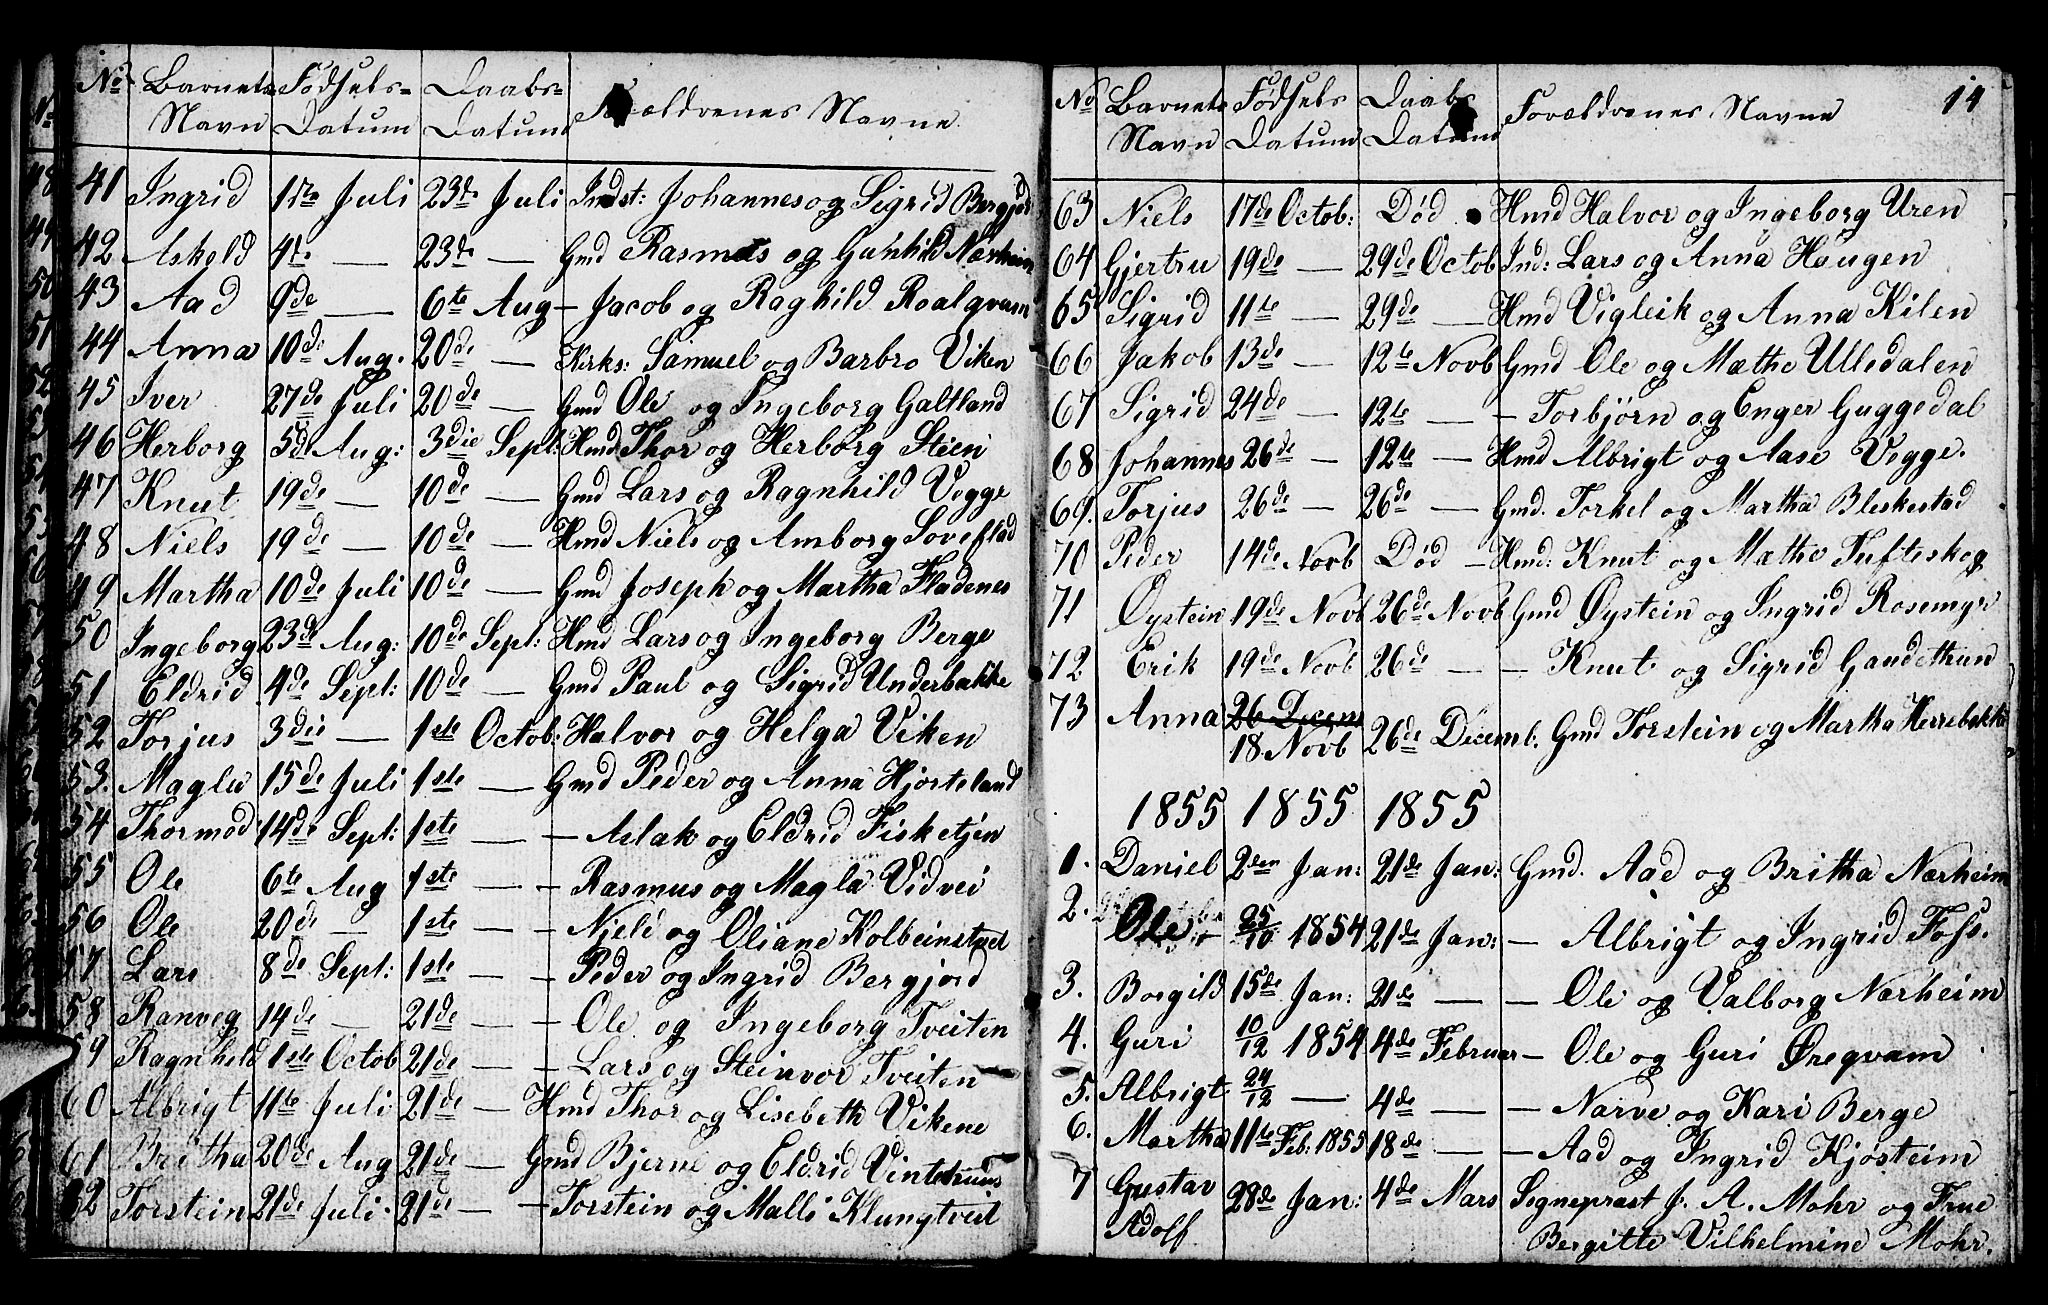 No Barnets Navn Fødsels-Datum Daabs-Datum Forældrenes Navne
41 Ingrid 1ste Juli 23de Juli Indst: Johannes og Sigrid Bergjord
42 Askold 4de — 23de — Gmd Rasmus og Gunhild Nærheim
43 Aad 9de — 6te Aug — Jacob og Raghild Roalqvam
44 Anna 10de Aug. 20de — Kirks: Samuel og Barbro Viken
45 Iver 27de Juli 20de — Gmd Ole og Ingeborg Galtland
46 Herborg 5de Aug: 3die Sept: Hmd Thor og Herborg Steen
47 Knut 19de — 10de — Gmd Lars og Ragnhild Vegge
48 Niels 19de — 10de — Hmd Niels og Amborg Soveflad
49 Martha 10de Juli 10de — Gmd Joseph og Martha Fladenes
50 Ingeborg 23de Aug: 10de Sept: Hmd Lars og Ingeborg Berge
51 Eldrid 4de Sept: 10de — Gmd Paul og Sigrid Underbakke
52 Torjus 3die — 1ste Octob: Halvor og Helga Viken
53. Magla 15de Juli 1ste — Gmd Peder og Anna Hjorteland
54 Thormod 14de Sept: 1ste — — Aslak og Eldrid Fisketjen
55 Ole 6te Aug 1ste — — Rasmus og Magla Vidvei
56 Ole 20de — 1ste — — Njeld og Oliane Kolbeinstvedt
57 Lars 8de Sept: 1ste — — Peder og Ingrid Bergjord
58 Ranveg 14de — 21de — — Ole og Ingeborg Tveiten
59 Ragnheld 1ste Octob 21de — — Lars og Steinvor Tveiten
60 Albrigt 11te Juli 21de — Hmd Thor og Lisebeth Vikene
61 Britha 20de Aug 21de — Gmd Bjerne og Eldrid Vintetruns
62 Torstein 21de Juli. 21de — — Torstein og Malli Klungtveit
14
No Barnets Navn Fødsels Datum Daabs Datum Forældrenes Navne
63 Niels 17de Octob: Død Hmd Halvor og Ingeborg Uren
64 Gjertru 19de — 29de Octob Ind: Lars og Anna Haugen
65 Sigrid 11te — 29de — Hmd Vigleik og Anna Kilen
66 Jakob 13de — 12te Novb Gmd Ole og Mæthe Ulledalen
67 Sigrid 24de — 12te — — Torbjørn og Enger Guggedal
68 Johannes 26de — 12te — Hmd Albrigt og Aase Vegge.
69. Torjus 26de — 26de — Gmd. Torkel og Martha Bleskestad
70 Peder 14de Novb Død — Hmd: Knut og Mæthe Tufteskog
71 Øystein 19de Novb 26de Novb Gmd Øystein og Ingrid Rosemyr
72 Erik 19de Novb 26de — — Knut og Sigrid Gandethun
73 Anna 26 Decem 18. Novb 26de Decemb. Gmd Torstein og Martha Herrebakke
1855 1855 1855
1. Daniel 2den Jan: 21de Jan: Gmd. Aad og Britha Nærheim
2. Ole 25/10 1854 21de Jan: — Albrigt og Ingrid Foss.
3. Borgild 15de Jan: 21de — — Ole og Valborg Nærheim
4. Guri 10/12 1854 4de Februar — Ole og Guri Øreqvam
5. Albrigt 24/12 — 4de — — Narve og Kari Berge
6. Martha 11te Feb: 1855 18de — — Aad og Ingrid Kjøsteim
7 Gustav 28de Jan: 4de Mars Sogneprest J. A. Mohr og Frue
Adolf Bergitte Vilhelmine Mohr.